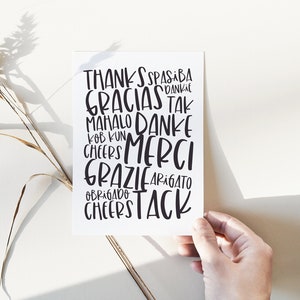 THANKS SPASIBA
DANKIE
GRACIAS TAK
MAHALO DANKE
KOB KUN
CHEERS MERCI
GRAZIE ARIGATO
OBRIGADO
CHEERS TACK